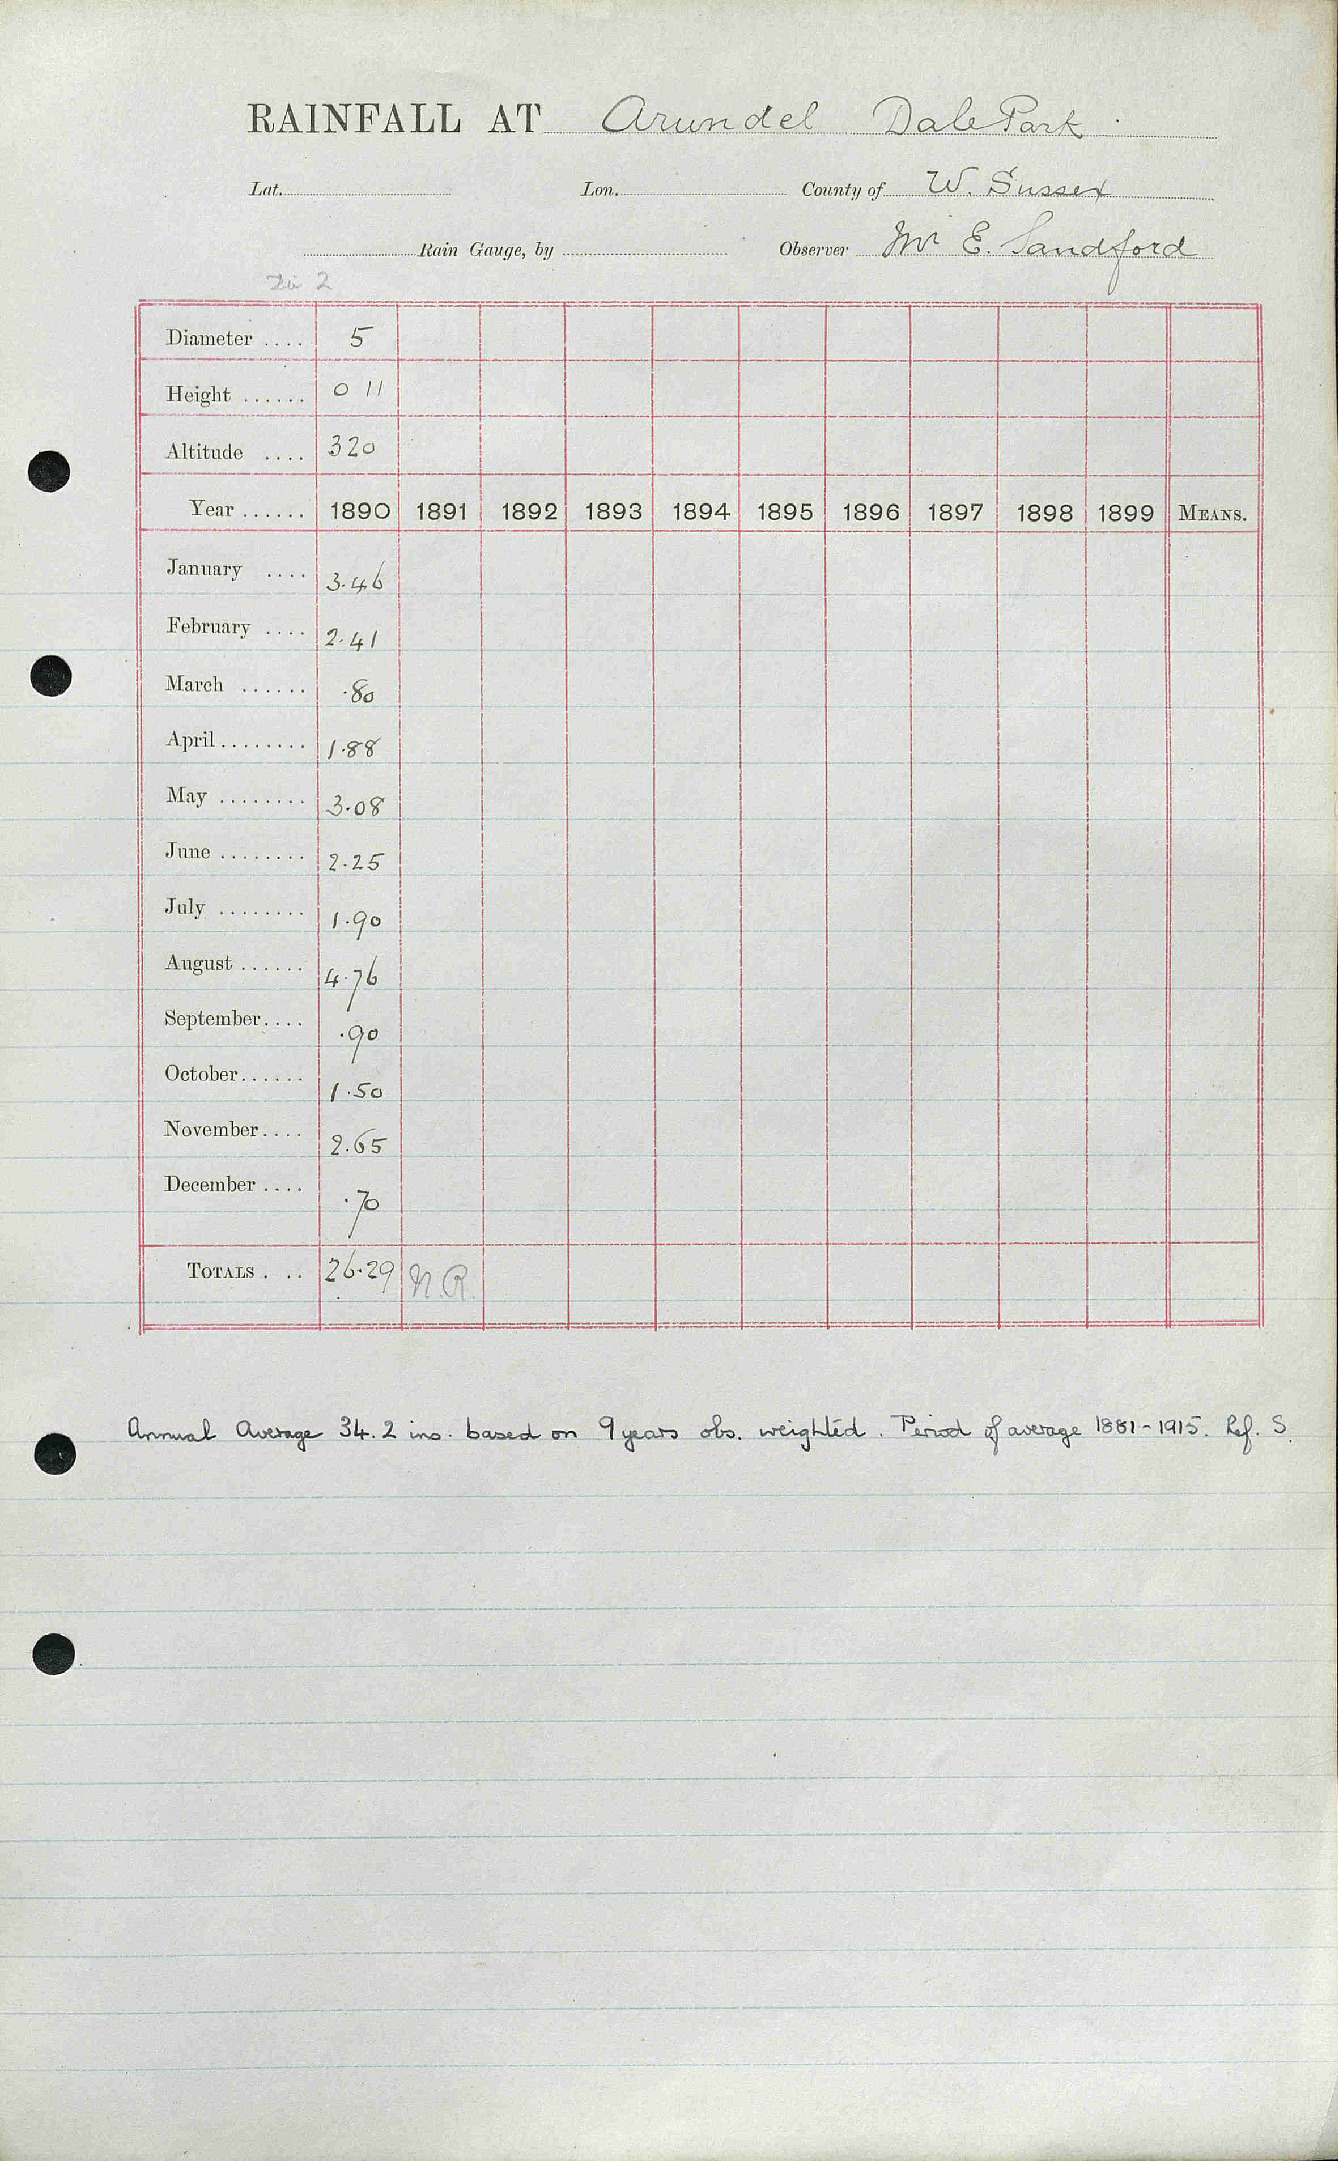 RAINFALL AT Arundel Dale Park
Lat. Lon. County of W. Sussex
Rain Gauge, by Observer Mr E. Sandford
2
Diameter .... 5
Height ...... 0 11
Altitude .... 320
Year ...... 1890 1891 1892 1893 1894 1895 1896 1897 1898 1899 MEANS.
January .... 3.46
February .... 2.41
March ...... .80
April........ 1.88
May ........ 3.08
June ........ 2.25
July ........ 1.90
August ...... 4.76
September.... .90
October...... 1.50
November.... 2.65
December .... .70
TOTALS . .. 26.29 N.R.
Annual Average 34.2 ins. based on 9 years obs. weighted. Period of average 1881-1915. Ref. S.